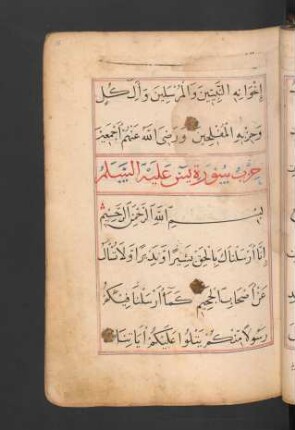 إِخْوَانِهِ النَّبِيِّينَ وَالْمُرْسَلِينَ وَآلِ كُلٍّ
وَحِزْبِهِ الْمُفْلِحِينَ وَرَضِيَ اللَّهُ عَنْهُمْ أَجْمَعِينَ
حزب سورة يس عليه السلم
بِسْمِ اللَّهِ الرَّحْمَنِ الرَّحِيمِ
إِنَّا أَرْسَلْنَاكَ بِالْحَقِّ بَشِيرًا وَنَذِيرًا وَلَا تُسْأَلُ
عَنْ أَصْحَابِ الْجَحِيمِ كَمَا أَرْسَلْنَا فِيكُمْ
رَسُولًا مِنْكُمْ يَتْلُوا عَلَيْكُمْ آيَاتِنَا